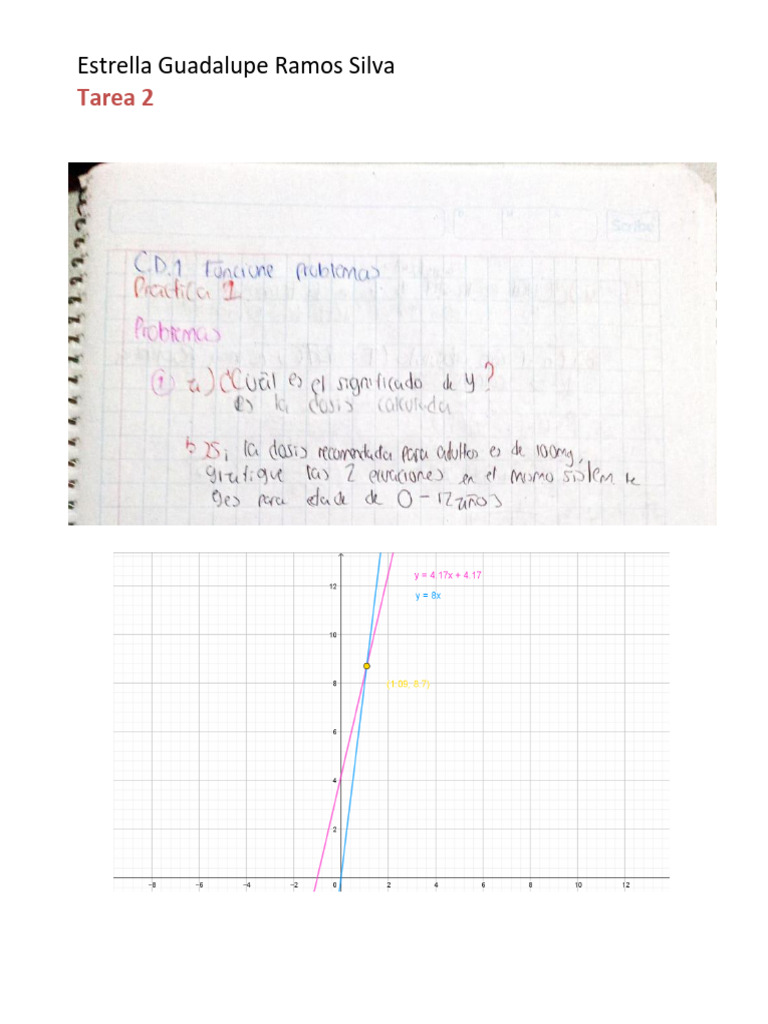 Estrella Guadalupe Ramos Silva
Tarea 2
Scribe
C.D.1 Funcione problemas
Practica 1
Problemas
① a) ¿Cuál es el significado de y?
es la dosis calculada
b) Si la dosis recomendada para adultos es de 100mg,
grafique las 2 ecuaciones en el mismo sistem de
ges para edade de 0-12 años
y = 4.17x + 4.17
y = 8x
(1.09, 8.7)
12
10
8
6
4
2
−8 −6 −4 −2 0 2 4 6 8 10 12